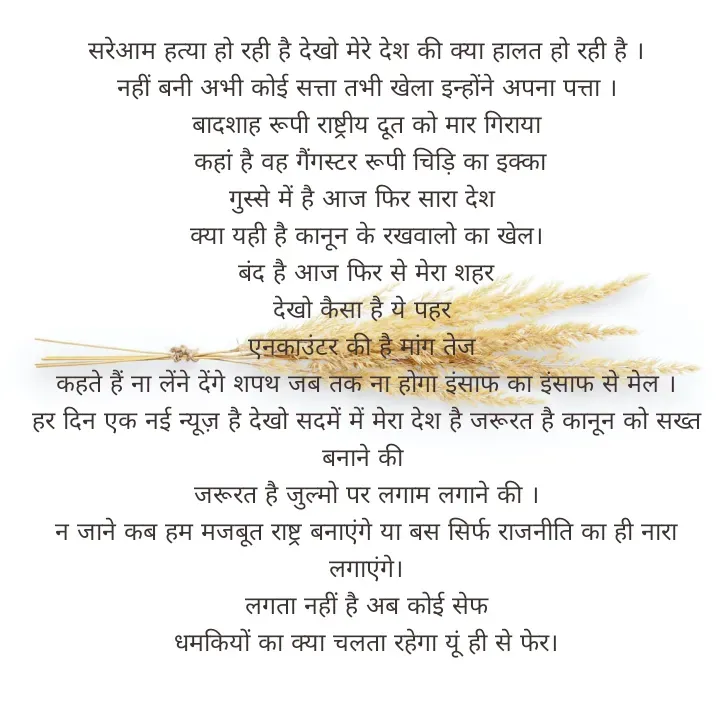 सरेआम हत्या हो रही है देखो मेरे देश की क्या हालत हो रही है ।
नहीं बनी अभी कोई सत्ता तभी खेला इन्होंने अपना पत्ता ।
बादशाह रूपी राष्ट्रीय दूत को मार गिराया
कहां है वह गैंगस्टर रूपी चिड़ि का इक्का
गुस्से में है आज फिर सारा देश
क्या यही है कानून के रखवालो का खेल।
बंद है आज फिर से मेरा शहर
देखो कैसा है ये पहर
एनकाउंटर की है मांग तेज
कहते हैं ना लेंने देंगे शपथ जब तक ना होगा इंसाफ का इंसाफ से मेल ।
हर दिन एक नई न्यूज़ है देखो सदमें में मेरा देश है जरूरत है कानून को सख्त
बनाने की
जरूरत है जुल्मो पर लगाम लगाने की ।
न जाने कब हम मजबूत राष्ट्र बनाएंगे या बस सिर्फ राजनीति का ही नारा
लगाएंगे।
लगता नहीं है अब कोई सेफ
धमकियों का क्या चलता रहेगा यूं ही से फेर।